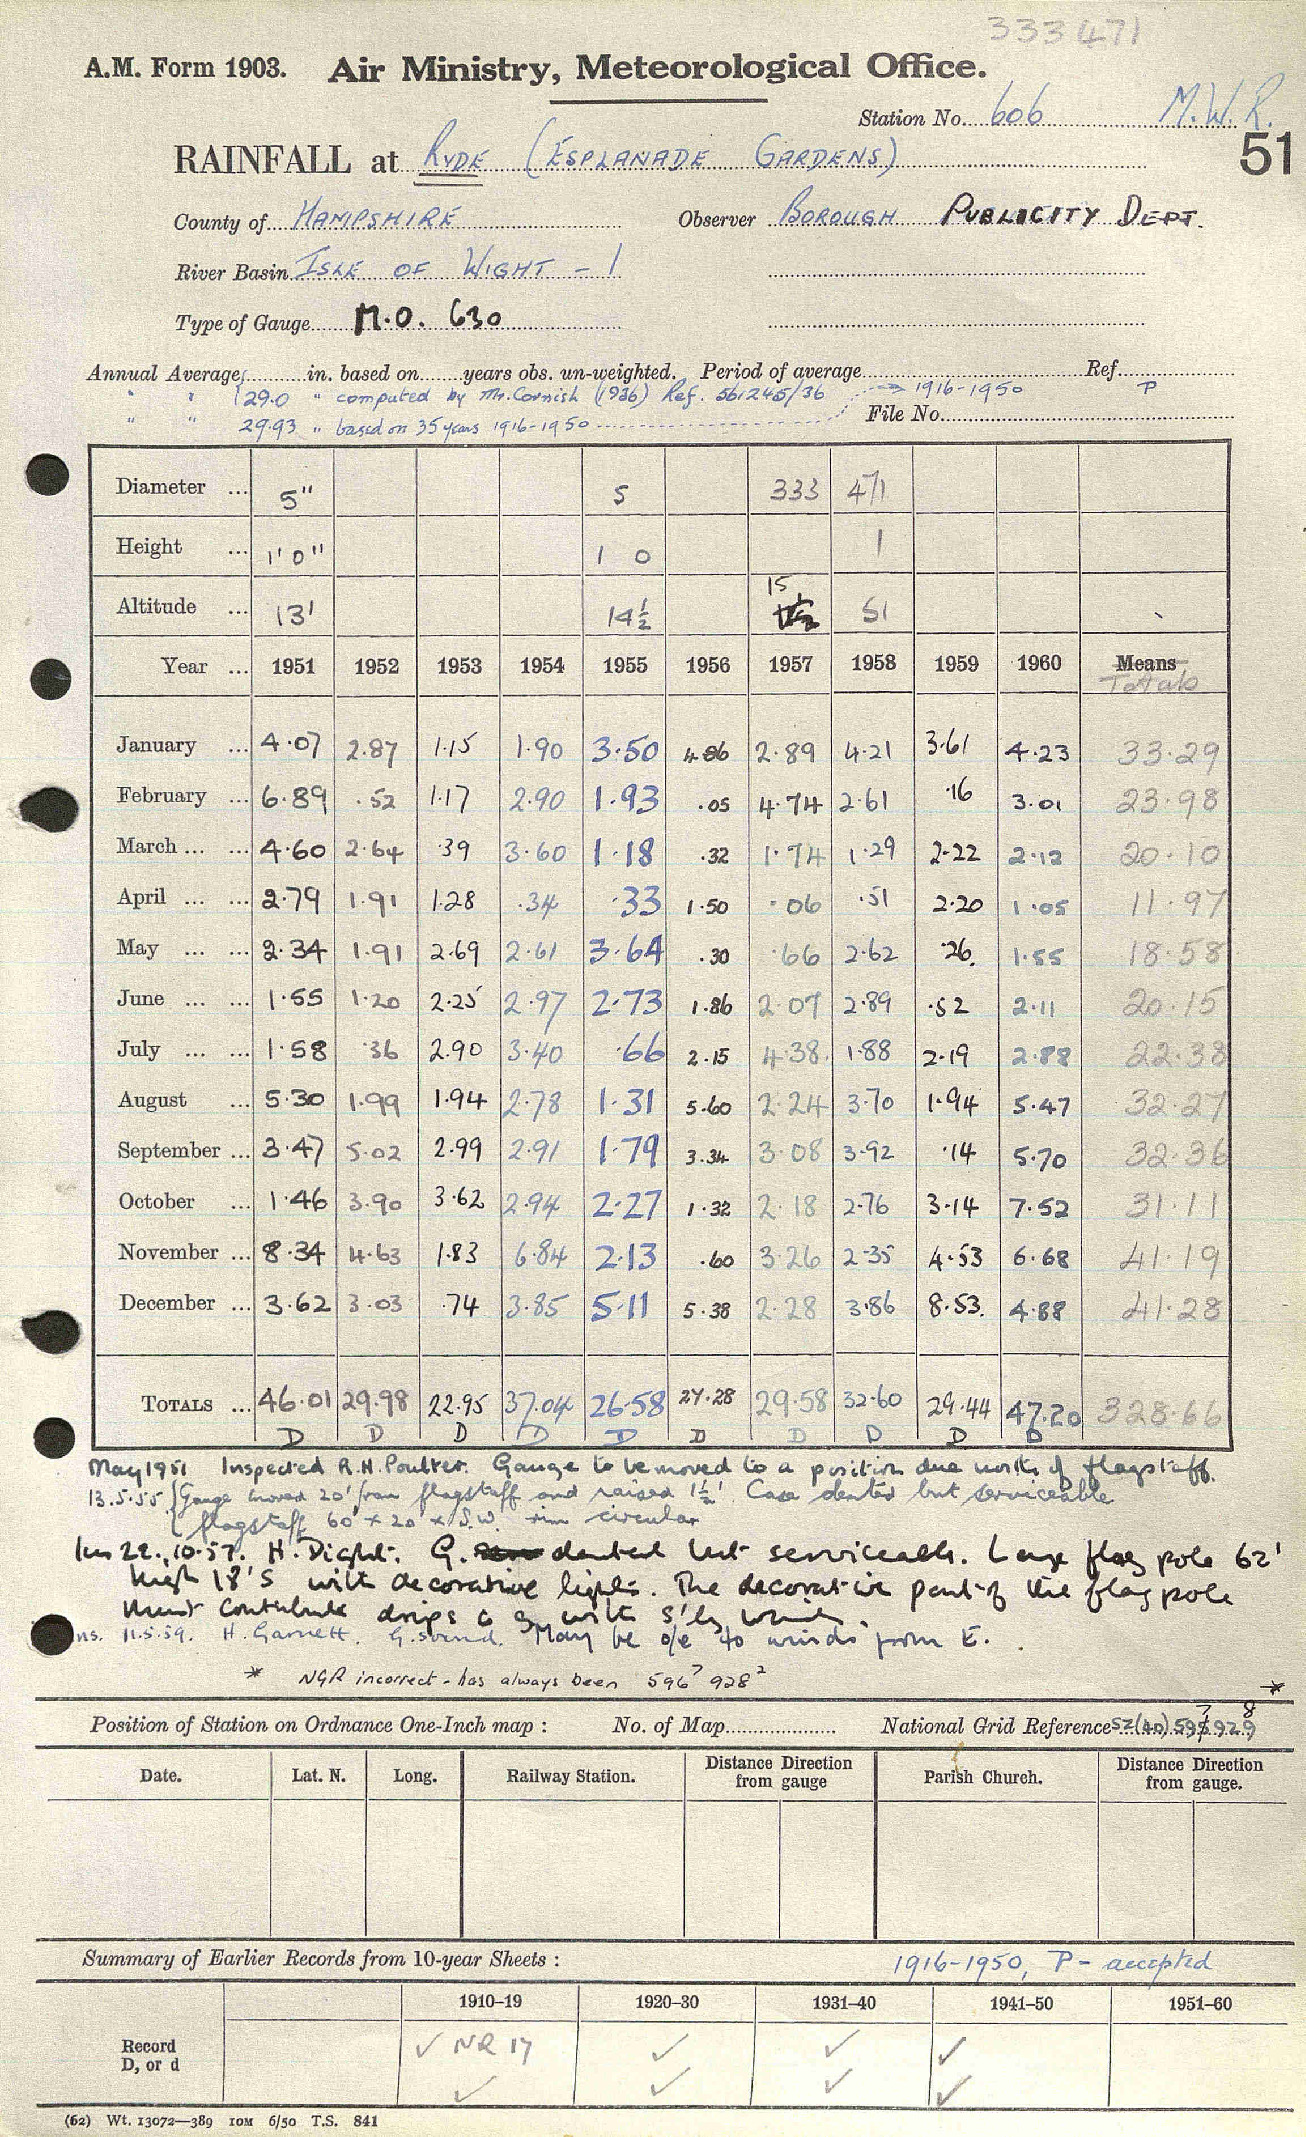 333471
A.M. Form 1903. Air Ministry, Meteorological Office.
Station No. 606 M.W.R.
RAINFALL at RYDE (ESPLANADE GARDENS) 51
County of HAMPSHIRE Observer BOROUGH PUBLICITY DEPT.
River Basin ISLE OF WIGHT - 1
Type of Gauge M.O. 630
Annual Average in. based on years obs. un-weighted. Period of average Ref.
" " 29.0 " computed by Mr. Cornish (1936) Ref. 561245/36 1916-1950 P
File No.
" " 29.93 " based on 35 years 1916-1950
Diameter ... 5" 5 333 471
Height ... 1'0" 1 0 1
Altitude ... 13' 14½ 15 51
Year ... 1951 1952 1953 1954 1955 1956 1957 1958 1959 1960 Means
Totals
January ... 4.07 2.87 1.15 1.90 3.50 4.86 2.89 4.21 3.61 4.23 33.29
February ... 6.89 .52 1.17 2.90 1.93 .05 4.74 2.61 .16 3.01 23.98
March ... ... 4.60 2.64 .39 3.60 1.18 .32 1.74 1.29 2.22 2.12 20.10
April ... ... 2.79 1.91 1.28 .34 .33 1.50 .06 .51 2.20 1.05 11.97
May ... ... 2.34 1.91 2.69 2.61 3.64 .30 .66 2.62 .26 1.55 18.58
June ... ... 1.55 1.20 2.25 2.97 2.73 1.86 2.07 2.89 .52 2.11 20.15
July ... ... 1.58 .36 2.90 3.40 .66 2.15 4.38 1.88 2.19 2.88 22.38
August ... 5.30 1.99 1.94 2.78 1.31 5.60 2.24 3.70 1.94 5.47 32.27
September ... 3.47 5.02 2.99 2.91 1.79 3.34 3.08 3.92 .14 5.70 32.36
October ... 1.46 3.90 3.62 2.94 2.27 1.32 2.18 2.76 3.14 7.52 31.11
November ... 8.34 4.63 1.83 6.84 2.13 .60 3.26 2.35 4.53 6.68 41.19
December ... 3.62 3.03 .74 3.85 5.11 5.38 2.28 3.86 8.53 4.88 41.28
TOTALS ... 46.01 29.98 22.95 37.04 26.58 27.28 29.58 32.60 29.44 47.20 328.66
D D D D D D D D D D
May 1951 Inspected R.H. Poulter. Gauge to be moved to a position due north of flagstaff.
13.5.55 Gauge moved 20' from flagstaff and raised 1½' Case dented but serviceable
flagstaff 60' x 20' x S.W. rim circular
Ins 22.10.57. H. Dight. G. dented but serviceable. Large flag pole 62'
high 18'S with decorative lights. The decorative part of the flag pole
must contribute drips to g with S'ly winds.
Ins. 11.5.59. H. Garnett. G. sound. May be o/e to winds from E.
* NGR incorrect - has always been 596⁷ 928² *
Position of Station on Ordnance One-Inch map : No. of Map National Grid Reference SZ(40) 595929 7 8
Date. Lat. N. Long. Railway Station. Distance Direction from gauge Parish Church. Distance Direction from gauge.
Summary of Earlier Records from 10-year Sheets : 1916-1950, P - accepted
1910-19 1920-30 1931-40 1941-50 1951-60
Record ✓ NR 17 ✓ ✓ ✓
D, or d ✓ ✓ ✓ ✓
(62) Wt. 13072—389 10M 6/50 T.S. 841